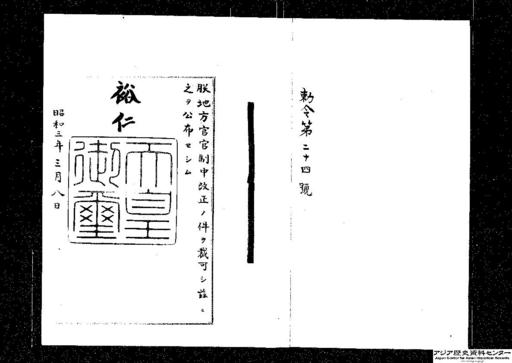 勅令第二十四號
朕地方官官制中改正ノ件ヲ裁可シ茲ニ
之ヲ公布セシム
裕仁
天皇
御璽
昭和三年三月八日
アジア歴史資料センター
Japan Center for Asian Historical Records